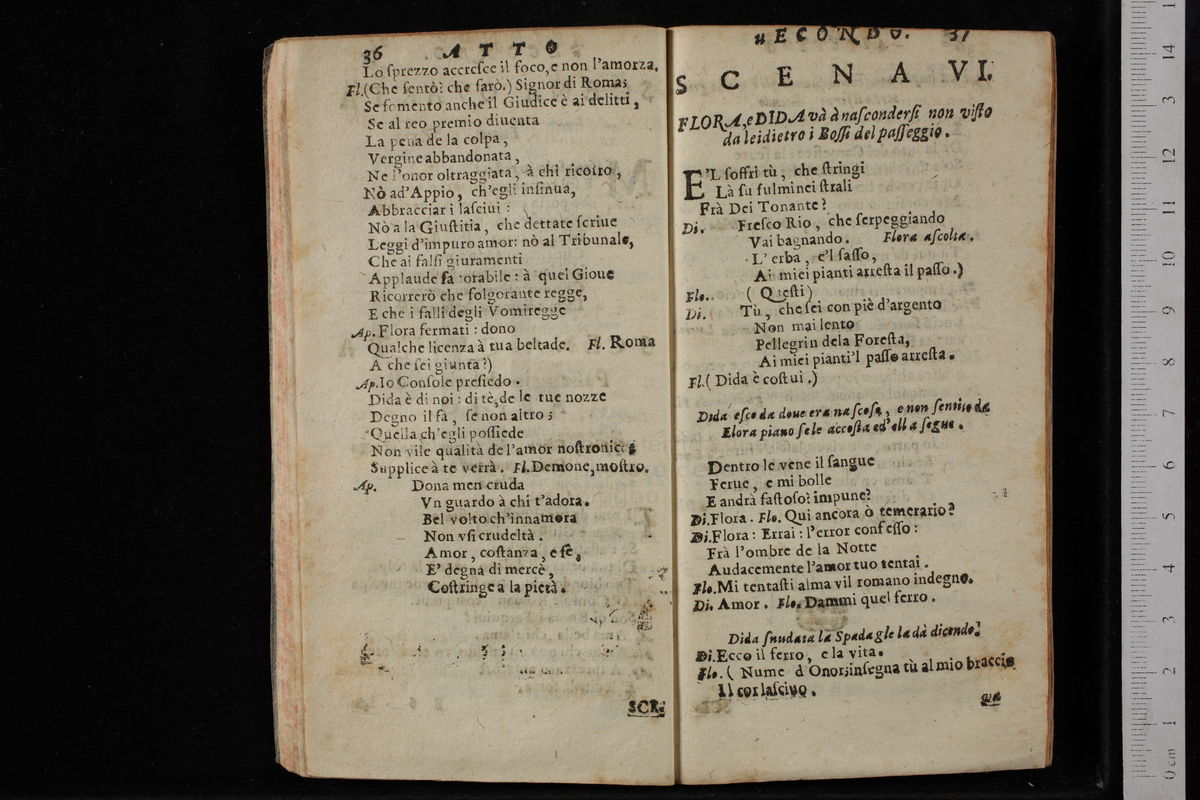 36 ATTO
Lo sprezzo accresce il foco, e non l'amorza.
Fl.(Che sentò! che farò.) Signor di Roma;
Se fomento anche il Giudice è ai delitti,
Se al reo premio diuenta
La pena de la colpa,
Vergine abbandonata,
Ne l'onor oltraggiata, à chi ricorro,
Nò ad'Appio, ch'egli insinua,
Abbracciar i lasciui:
Nò a la Giustitia, che dettate scriue
Leggi d'impuro amor: nò al Tribunale,
Che ai falsi giuramenti
Applaude fauorabile: à quel Gioue
Ricorrerò che folgorante regge,
E che i falli degli Vomiregge
Ap. Flora fermati: dono
Qualche licenza à tua beltade. Fl. Roma
A che sei giunta?)
Ap.Io Console presiedo.
Dida è di noi: di tè, de le tue nozze
Degno il fa, se non altro;
Quella ch'egli possiede
Non vile qualità de l'amor nostro
Supplice à te verrà. Fl. Demone, mostro.
Ap. Dona men cruda
Vn guardo à chi t'adora.
Bel volto ch'innamora
Non vsi crudeltà.
Amor, costanza, e fè,
E' degna di mercè,
Costringe a la pietà.
SCE-
SECONDO. 37
SCENA VI.
FLORA, e DIDA và à nascondersi non visto
da lei dietro i Bossi del passeggio.
E'L soffri tù, che stringi
Là su fulminei strali
Frà Dei Tonante?
Di. Fresco Rio, che serpeggiando
Vai bagnando. Flora ascolta.
L'erba, e'l sasso,
Ai miei pianti arresta il passo.)
Flo. (Questi)
Di. Tù, che sei con piè d'argento
Non mai lento
Pellegrin dela Foresta,
Ai miei pianti'l passo arresta.
Fl.(Dida è costui.)
Dida esce da doue era nascoso, e non sentito da
Flora piano se le accosta ed'ella segue.
Dentro le vene il sangue
Ferue, e mi bolle
E andrà fastoso! impune?
Di.Flora. Flo. Qui ancora ò temerario?
Di.Flora: Errai: l'error confesso:
Frà l'ombre de la Notte
Audacemente l'amor tuo tentai.
Flo.Mi tentasti alma vil romano indegno.
Di. Amor. Flo. Dammi quel ferro.
Dida snudata la Spada gle la dà dicendo!
Di.Ecco il ferro, e la vita.
Flo.( Nume d'Onor; insegna tù al mio braccio
Il cor lasciuo.